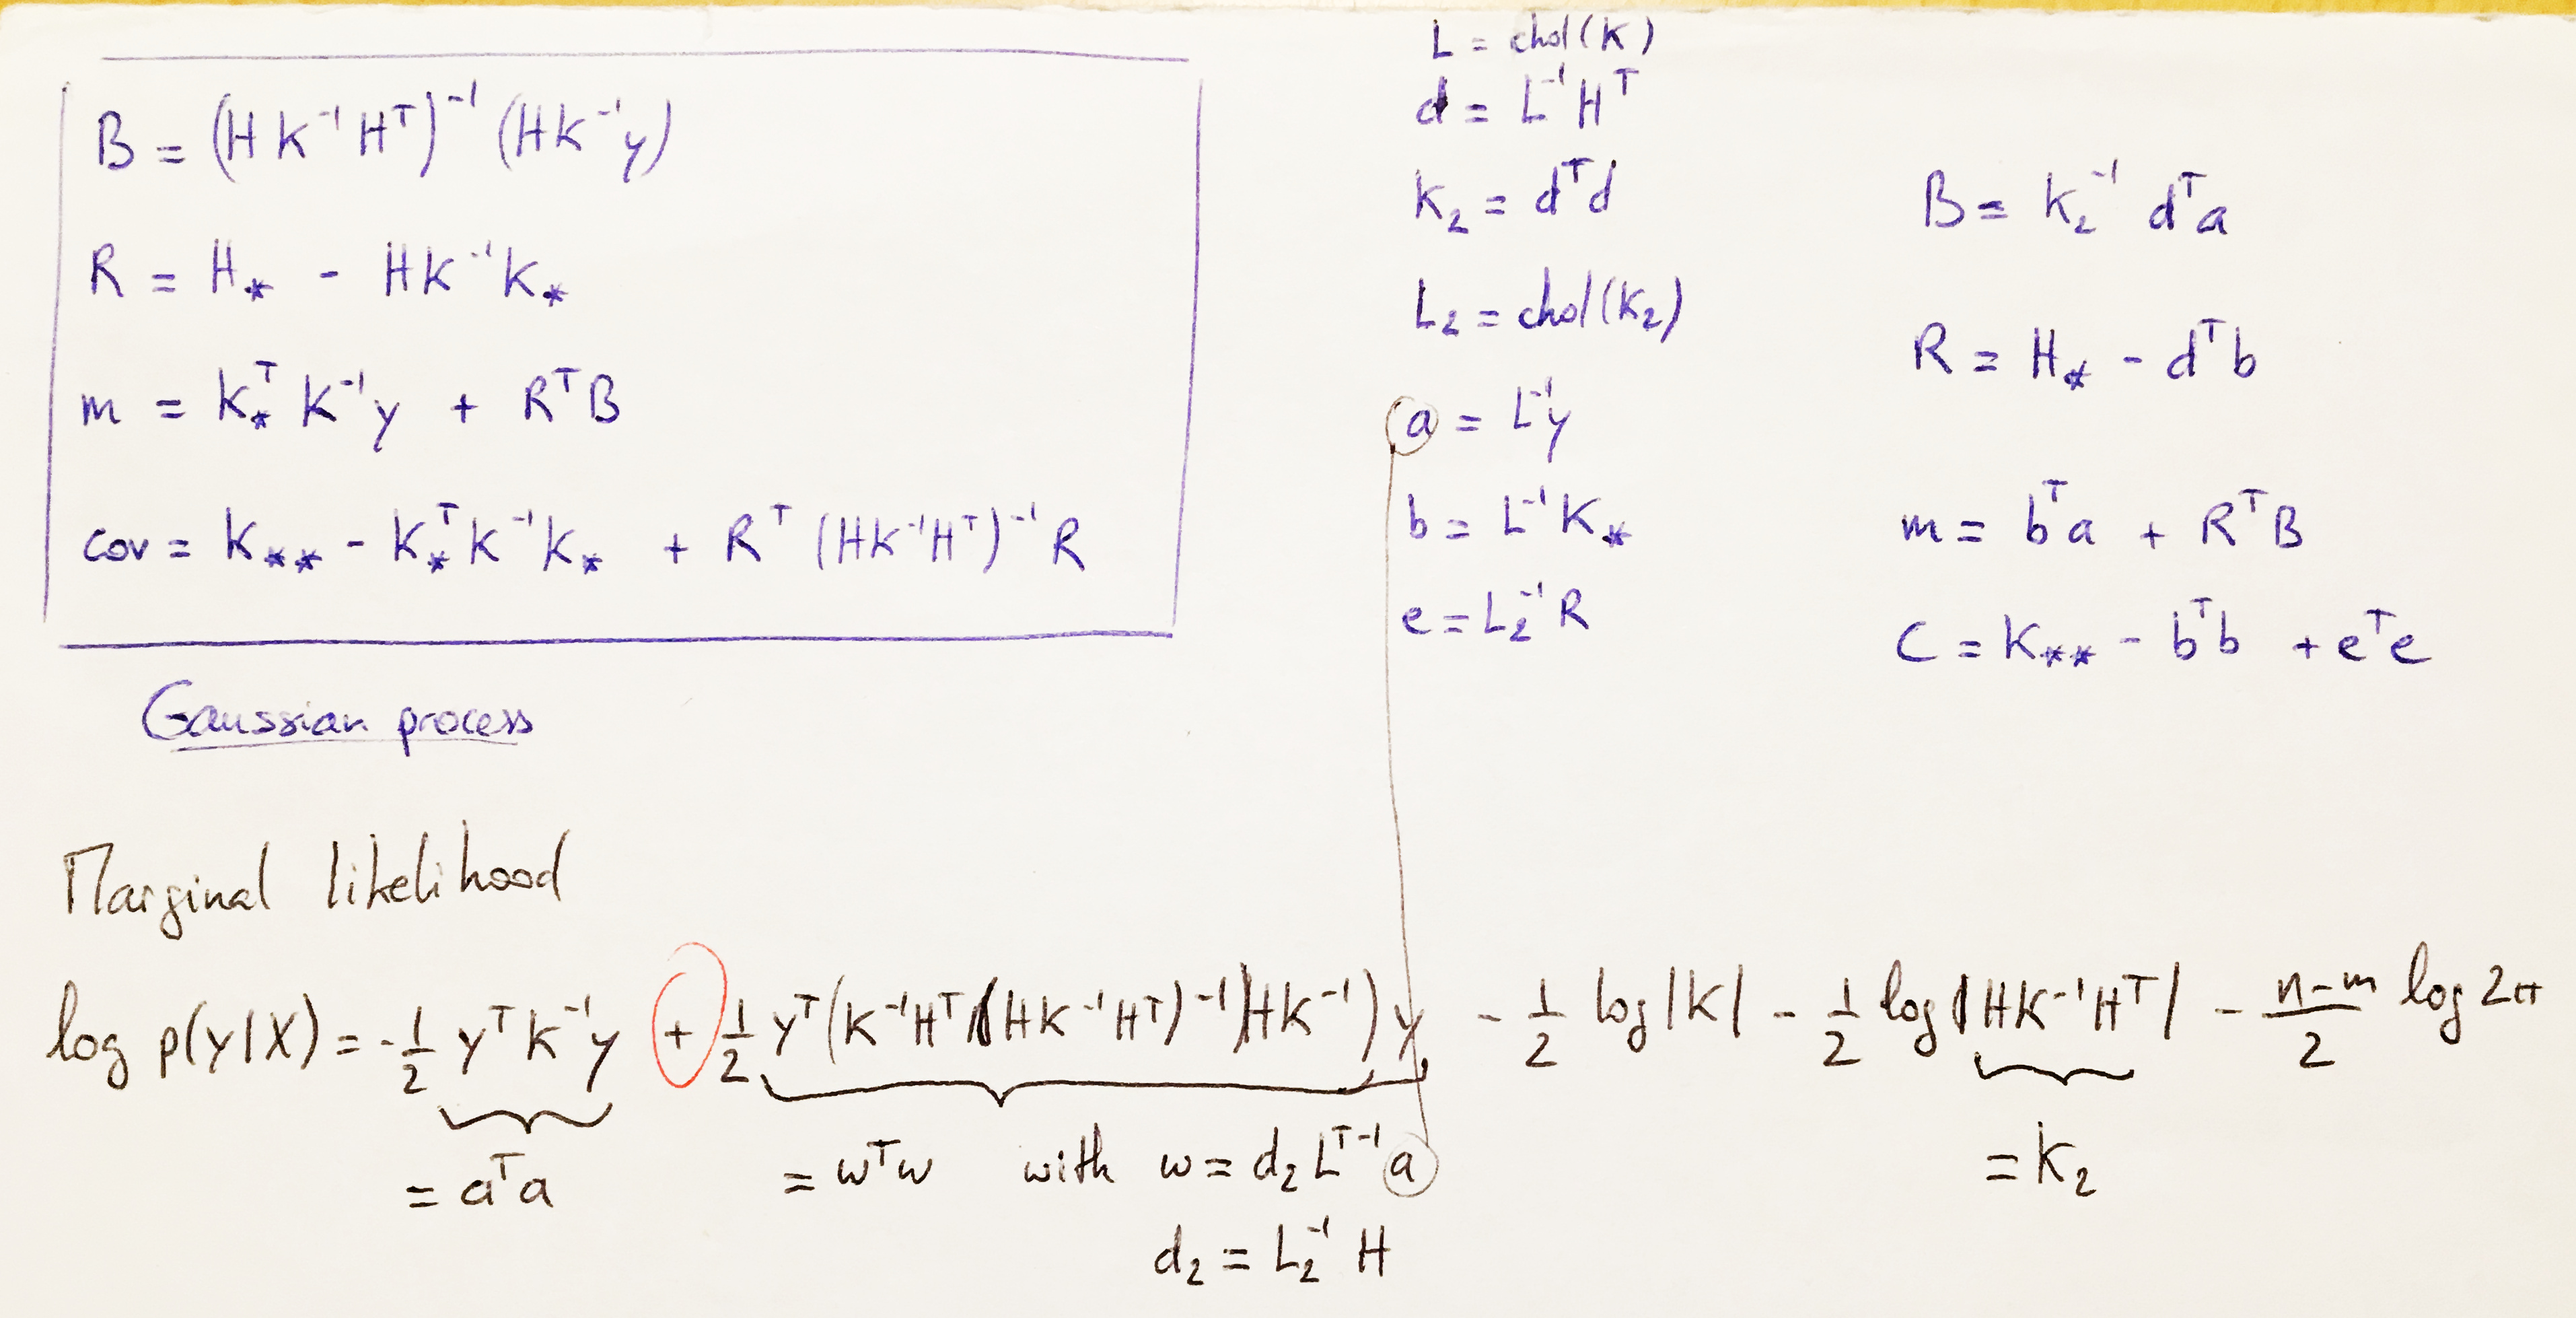 B = (H K⁻¹ Hᵀ)⁻¹ (H K⁻¹ y)
R = H⁎ - H K⁻¹ K⁎
m = K⁎ᵀ K⁻¹ y + Rᵀ B
cov = K⁎⁎ - K⁎ᵀ K⁻¹ K⁎ + Rᵀ (H K⁻¹ Hᵀ)⁻¹ R
Gaussian process
L = chol(K)
d = L⁻¹ Hᵀ
K₂ = dᵀ d
L₂ = chol(K₂)
a = L⁻¹ y
b = L⁻¹ K⁎
e = L₂⁻¹ R
B = K₂⁻¹ dᵀ a
R = H⁎ - dᵀ b
m = bᵀ a + Rᵀ B
C = K⁎⁎ - bᵀ b + eᵀ e
Marginal likelihood
log p(y|X) = -1/2 yᵀ K⁻¹ y + 1/2 yᵀ (K⁻¹ Hᵀ (H K⁻¹ Hᵀ)⁻¹ H K⁻¹) y - 1/2 log |K| - 1/2 log |H K⁻¹ Hᵀ| - (n-m)/2 log 2π
= aᵀ a = wᵀ w with w = d₂ Lᵀ⁻¹ a = K₂
d₂ = L₂⁻¹ H